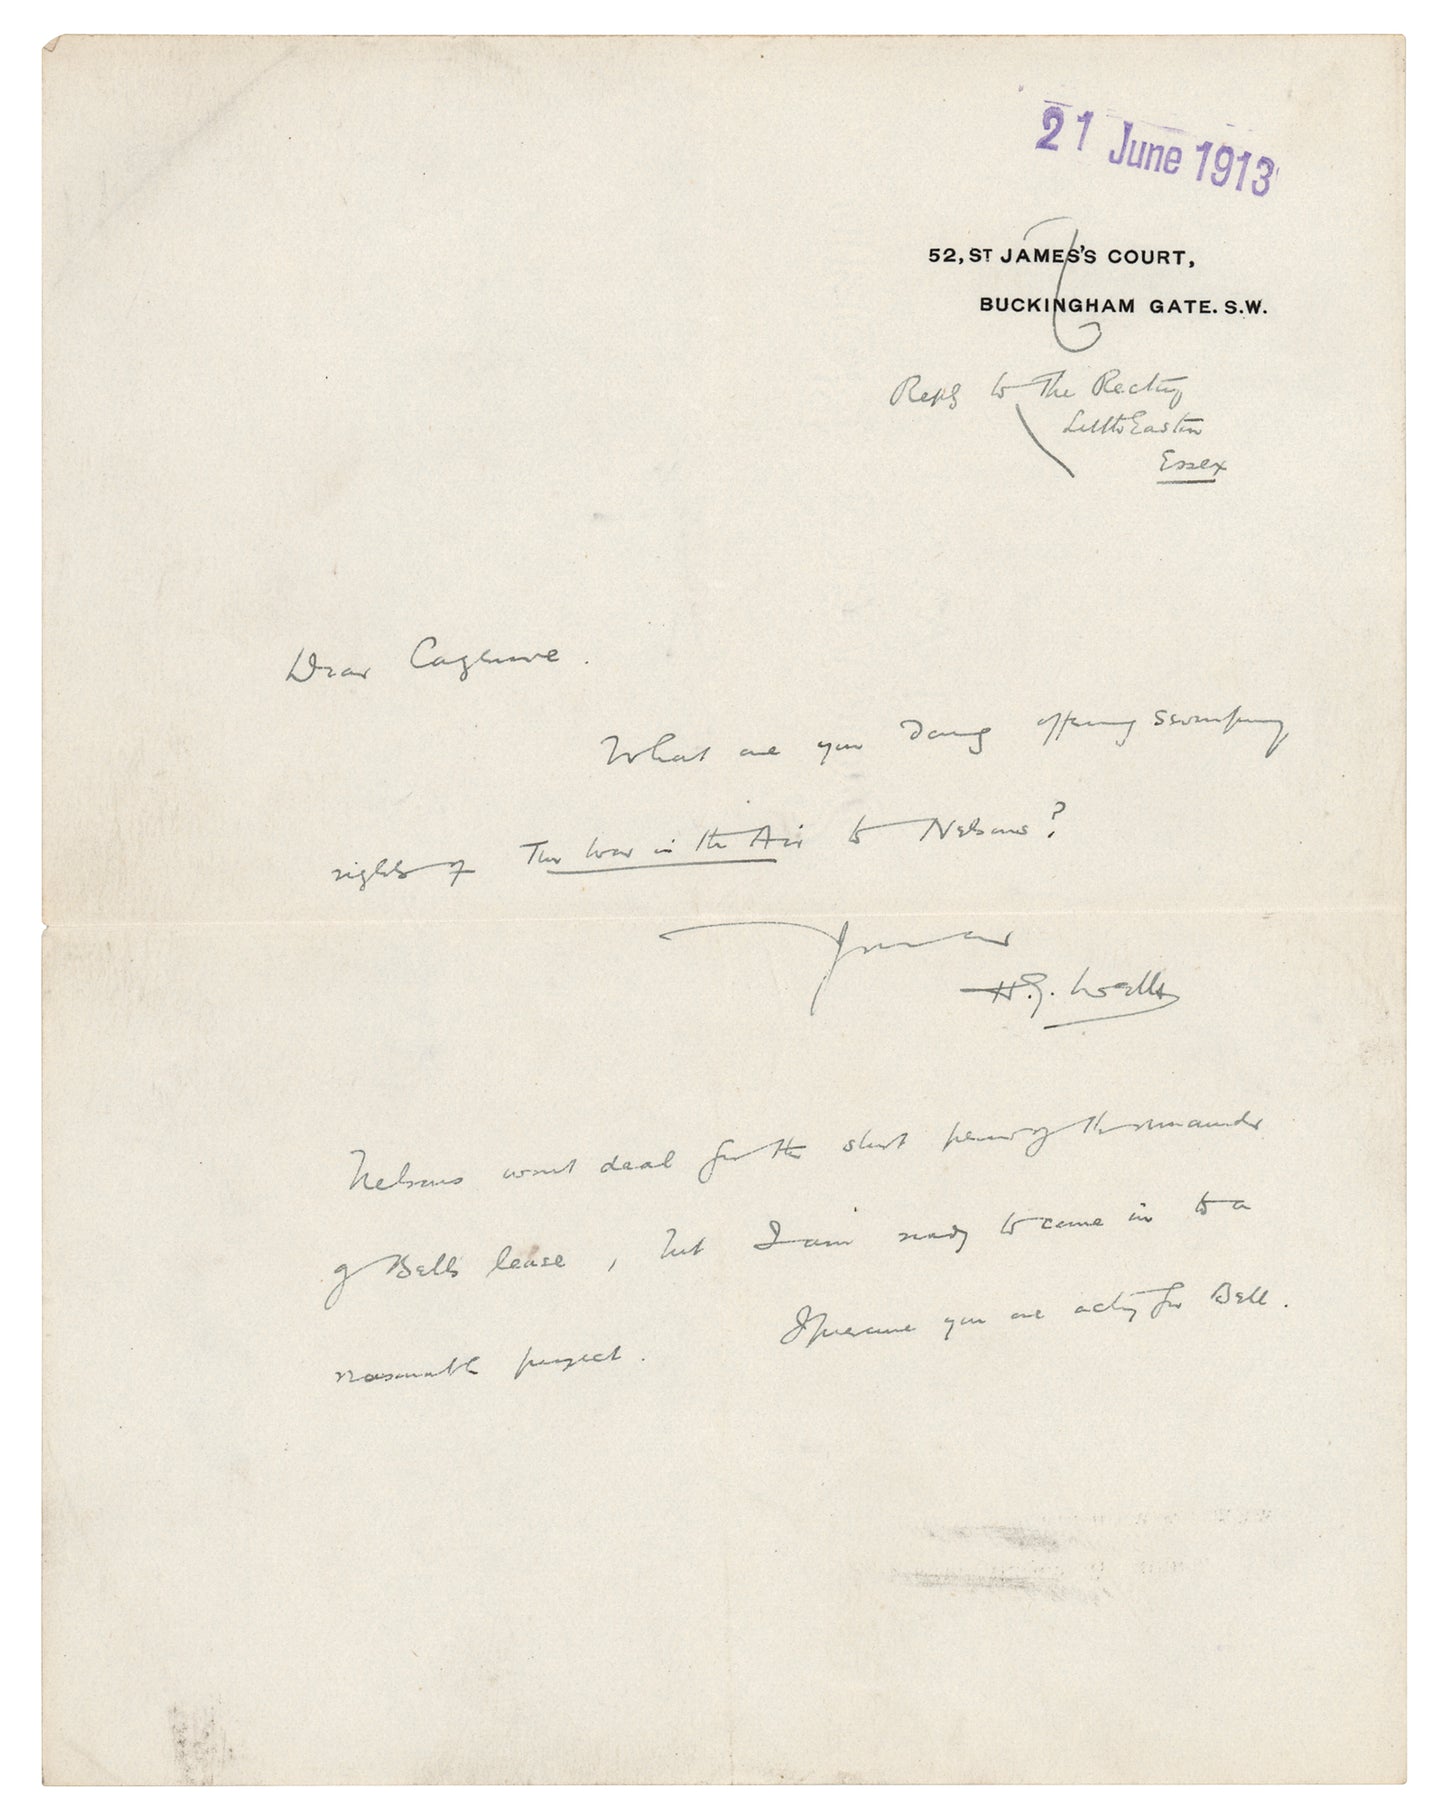 21 June 1913
52, ST JAMES'S COURT,
BUCKINGHAM GATE. S.W.
Reply to The Rectory
Little Easton
Essex
Dear Cazenove.
What are you doing offering sevenpenny
rights of The War in the Air to Nelsons?
Yours ever
H.G. Wells
Nelsons wont deal for the short period of the remainder
of Bells lease, but I am ready to come in to a
reasonable project. I presume you are acting for Bell.